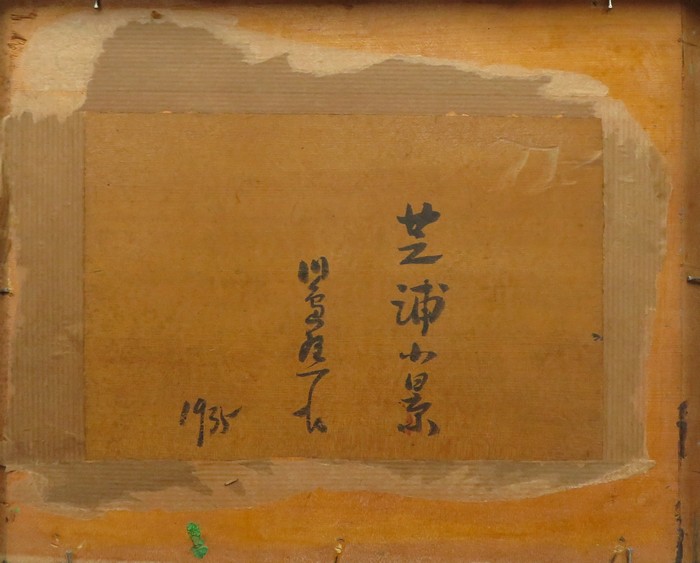 芝浦小景
川島理一郎
1935